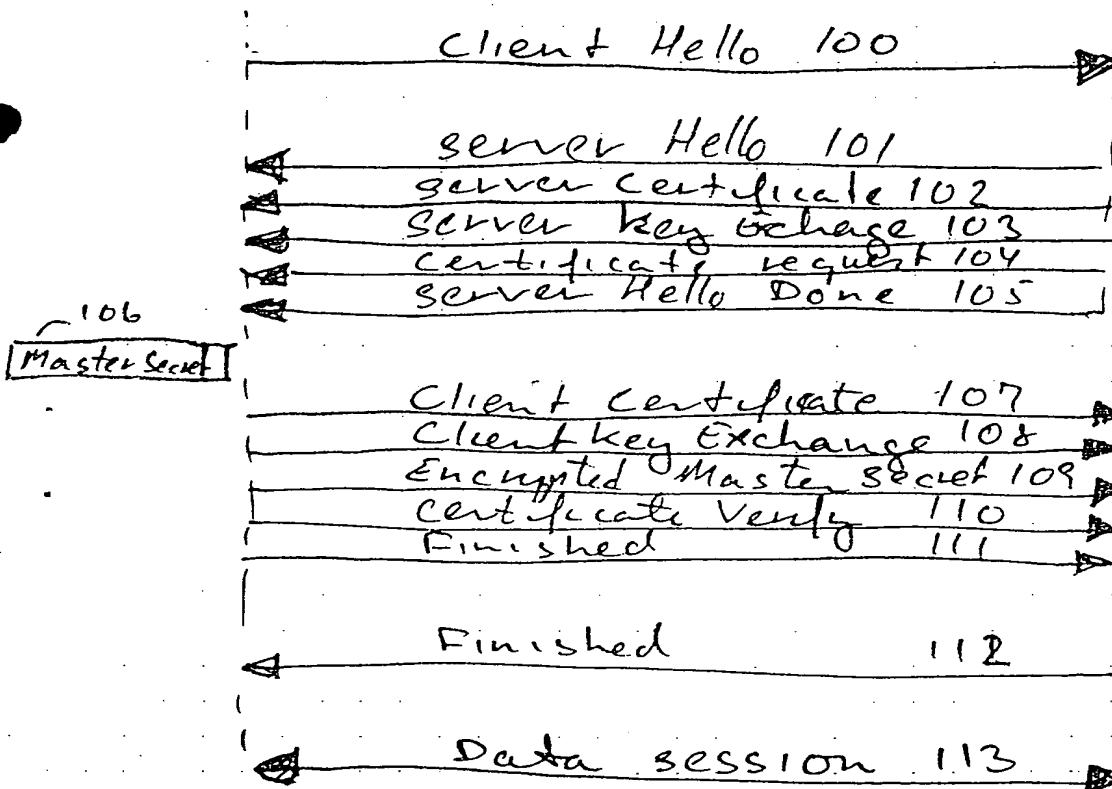 Client Hello 100
server Hello 101
server Certificate 102
Server Key Exchage 103
Certificate request 104
Server Hello Done 105
106
Master Secret
Client Certificate 107
Client Key Exchange 108
Encrypted Master Secret 109
Certificate Verify 110
Finished 111
Finished 112
Data session 113